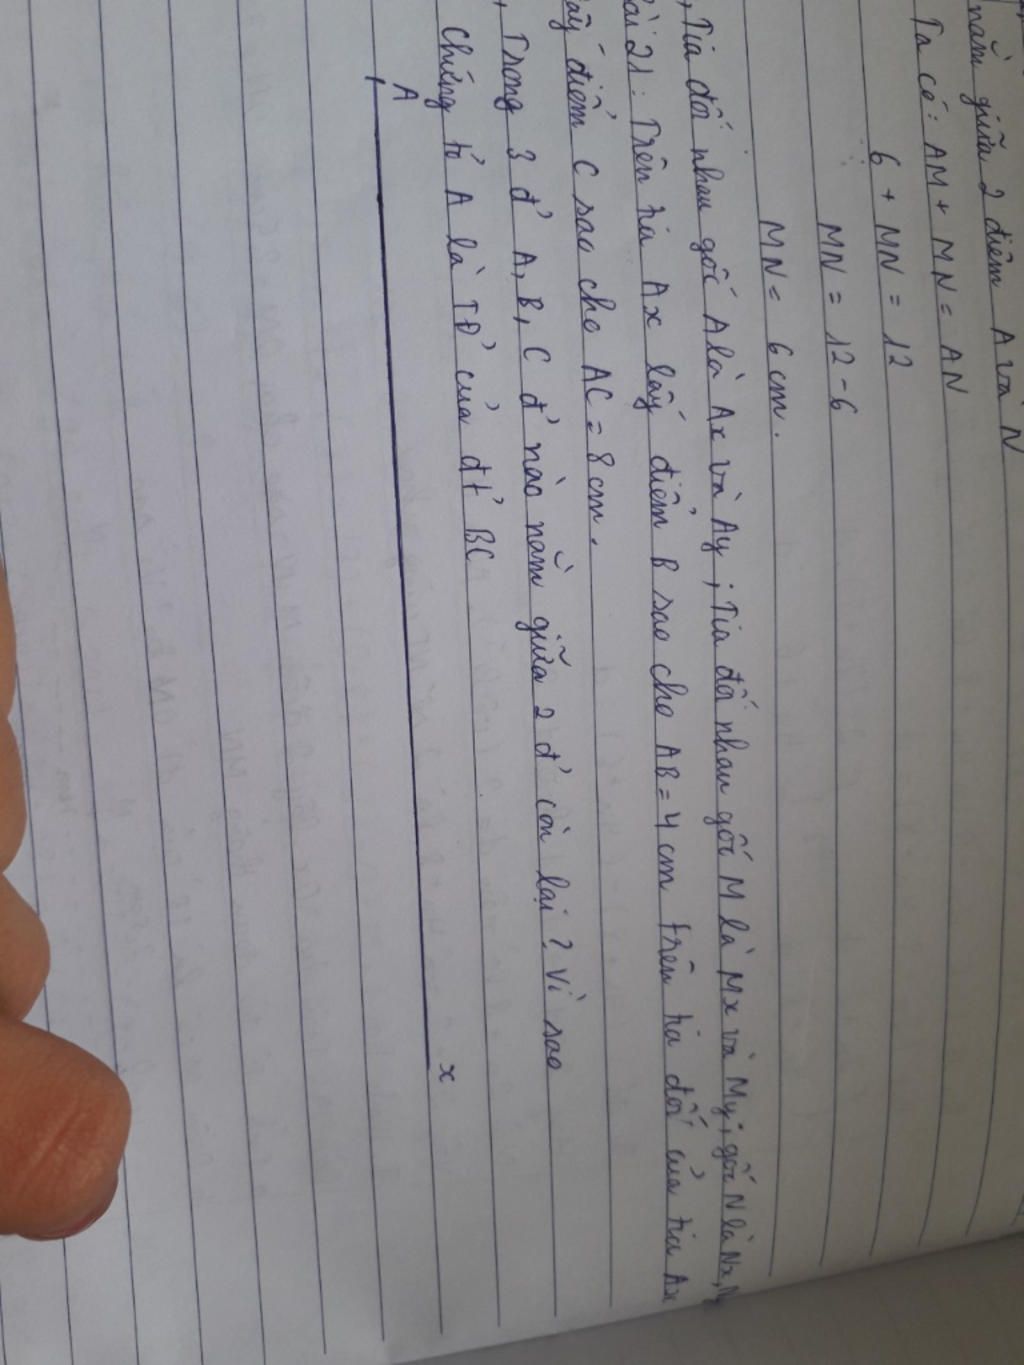 nằm giữa 2 điểm A và N
Ta có: AM + MN = AN
6 + MN = 12
MN = 12 - 6
MN = 6 cm.
, Tia đối nhau gốc A là Ax và Ay ; Tia đối nhau gốc M là Mx và My ; gốc N là Nx, Ny
ài 21: Trên tia Ax lấy điểm B sao cho AB = 4 cm trên tia đối của tia Ax
ấy điểm C sao cho AC = 8 cm.
, Trong 3 đ' A, B, C đ' nào nằm giữa 2 đ' còn lại ? Vì sao
Chứng tỏ A là TĐ' của đt' BC
A x